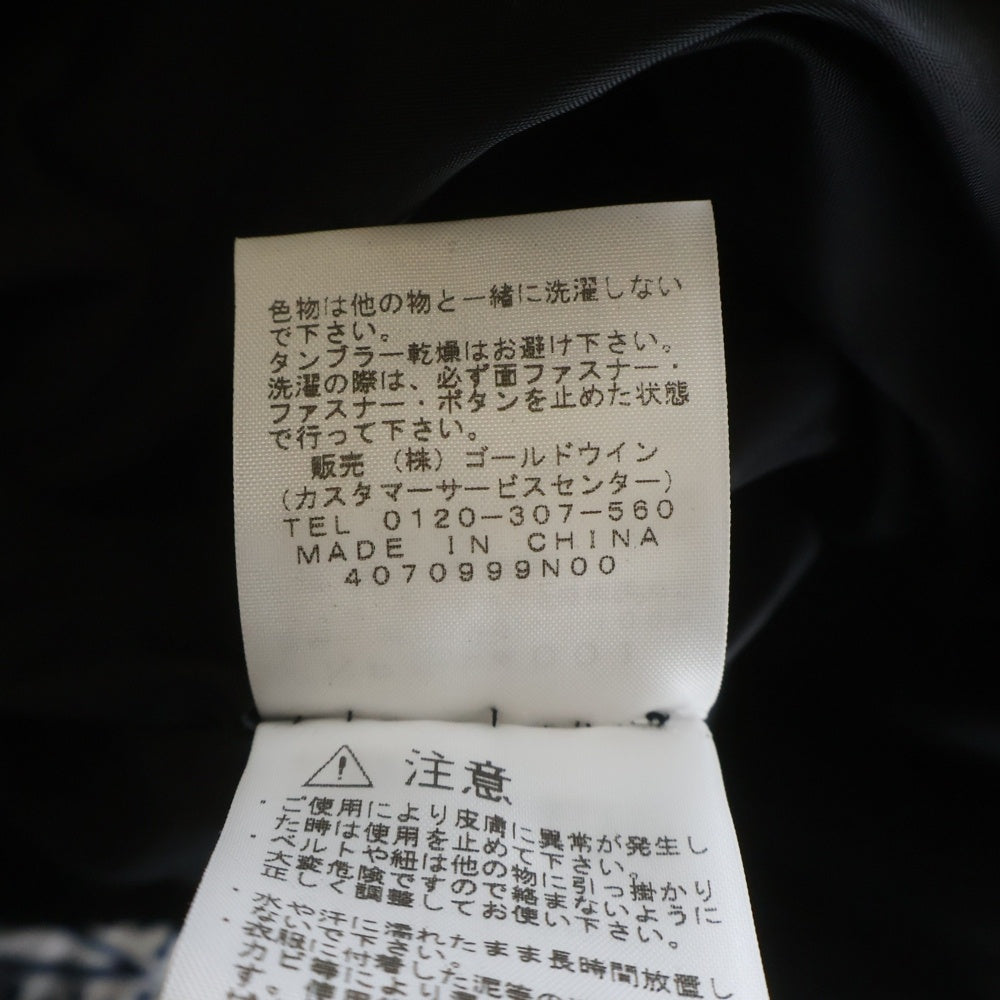 色物は他の物と一緒に洗濯しない
で下さい。
タンブラー乾燥はお避け下さい。
洗濯の際は、必ず面ファスナー・
ファスナー・ボタンを止めた状態
で行って下さい。
販売 (株) ゴールドウイン
(カスタマーサービスセンター)
TEL 0120-307-560
MADE IN CHINA
4070999N00
注意
・ご使用により皮膚に異常が発生し
た時は使用を止めて下さい。
・ベルトや紐は他の物に引っ掛かり
大変危険ですので絡まないように
正しく調整してお使い下さい。
・水や汗に濡れたまま長時間放置し
ないで下さい。